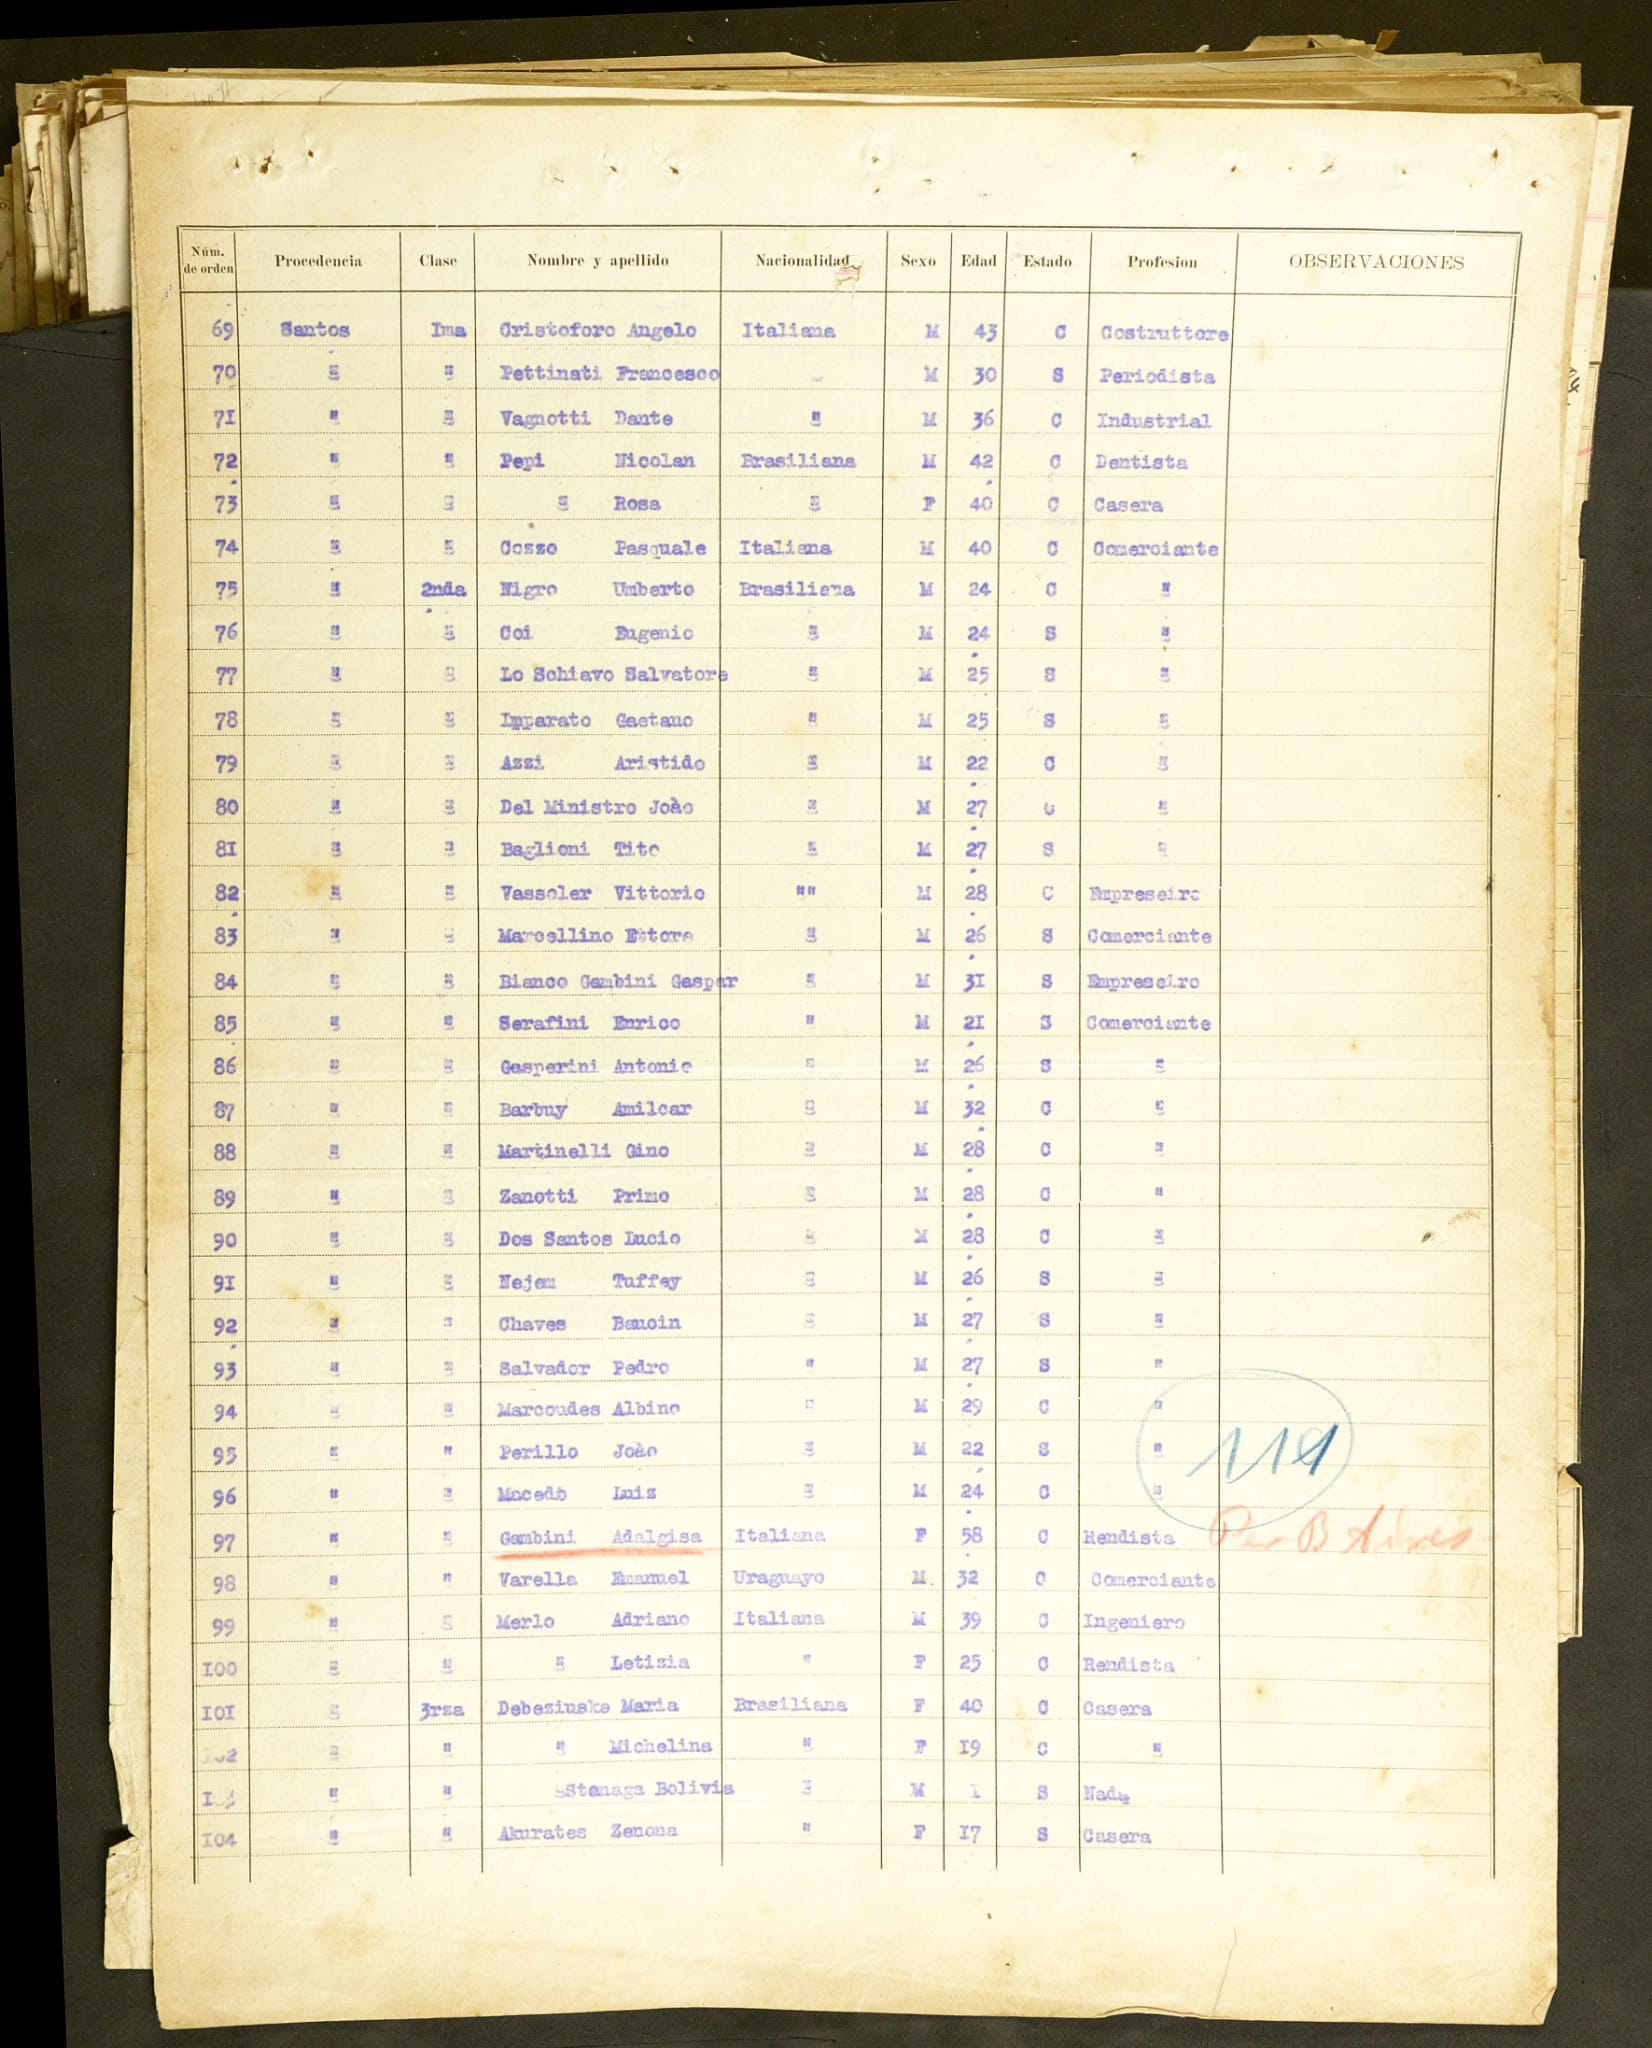 Núm. de orden Procedencia Clase Nombre y apellido Nacionalidad Sexo Edad Estado Profesion OBSERVACIONES
69 Santos Ima Cristoforo Angelo Italiana M 43 C Costruttore
70 " " Pettinati Francesco M 30 S Periodista
71 " " Vagnotti Dante " M 36 C Industrial
72 " " Pepi Nicolan Brasiliana M 42 C Dentista
73 " " " Rosa " F 40 C Casera
74 " " Cozzo Pasquale Italiana M 40 C Comerciante
75 " 2nda Nigro Umberto Brasiliana M 24 C "
76 " " Coi Eugenio " M 24 S "
77 " " Lo Schiavo Salvatore " M 25 S "
78 " " Imparato Gaetano " M 25 S "
79 " " Azzi Aristide " M 22 C "
80 " " Del Ministro Joào " M 27 C "
81 " " Baglioni Tito " M 27 S "
82 " " Vassoler Vittorio "" M 28 C Empreseiro
83 " " Marcellino Ettore " M 26 S Comerciante
84 " " Bianco Gambini Gaspar " M 3I S Empreseiro
85 " " Serafini Enrico " M 2I S Comerciante
86 " " Gasperini Antonio " M 26 S "
87 " " Barbuy Amilcar " M 32 C "
88 " " Martinelli Gino " M 28 C "
89 " " Zanotti Primo " M 28 C "
90 " " Dos Santos Lucio " M 28 C "
9I " " Nejem Tuffey " M 26 S "
92 " " Chaves Baucin " M 27 S "
93 " " Salvador Pedro " M 27 S "
94 " " Marcoudes Albino " M 29 C "
95 " " Perillo Joào " M 22 S "
119
96 " " Macedo Luiz " M 24 C "
97 " " Gambini Adalgisa Italiana F 58 C Rendista Per B Aires
98 " " Varella Emanuel Uraguayo M. 32 C Comerciante
99 " " Merlo Adriano Italiana M 39 C Ingeniero
I00 " " " Letizia " F 25 C Rendista
I0I " 3rza Debeziuske Maria Brasiliana F 40 C Casera
I02 " " " Michelina " F I9 C "
I03 " " Stenaga Bolivia " M I S Nada
I04 " " Akurates Zenona " F I7 S Casera